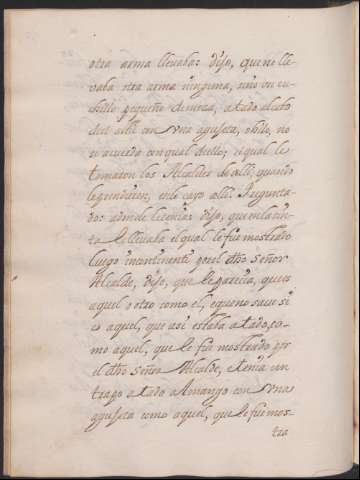 otra arma llevaba: dijo, que no lle-
vaba otra arma ninguna, sino un cu-
chillo pequeño de mesa, atado al cabo
del con una agujeta, o hilo, no
se acuerda con qual dello; el qual le
tomaron los Alcaldes de alli, quando
le prendieron, en le caro alli. Pregunta-
do: adonde le tenia: dijo, que en la cin-
ta le llevaba el qual le fue mostrado
luego incontinenti por el dho Señor
Alcalde, dijo, que le parecia, que es
aquel o otro como el, e que no save si
es aquel, que asi estaba atado, co-
mo aquel, que le fue mostrado por
el dho Señor Alcalde, e tenia un
trapo atado a Amango con una
agujeta como aquel, que le fue mos-
tra